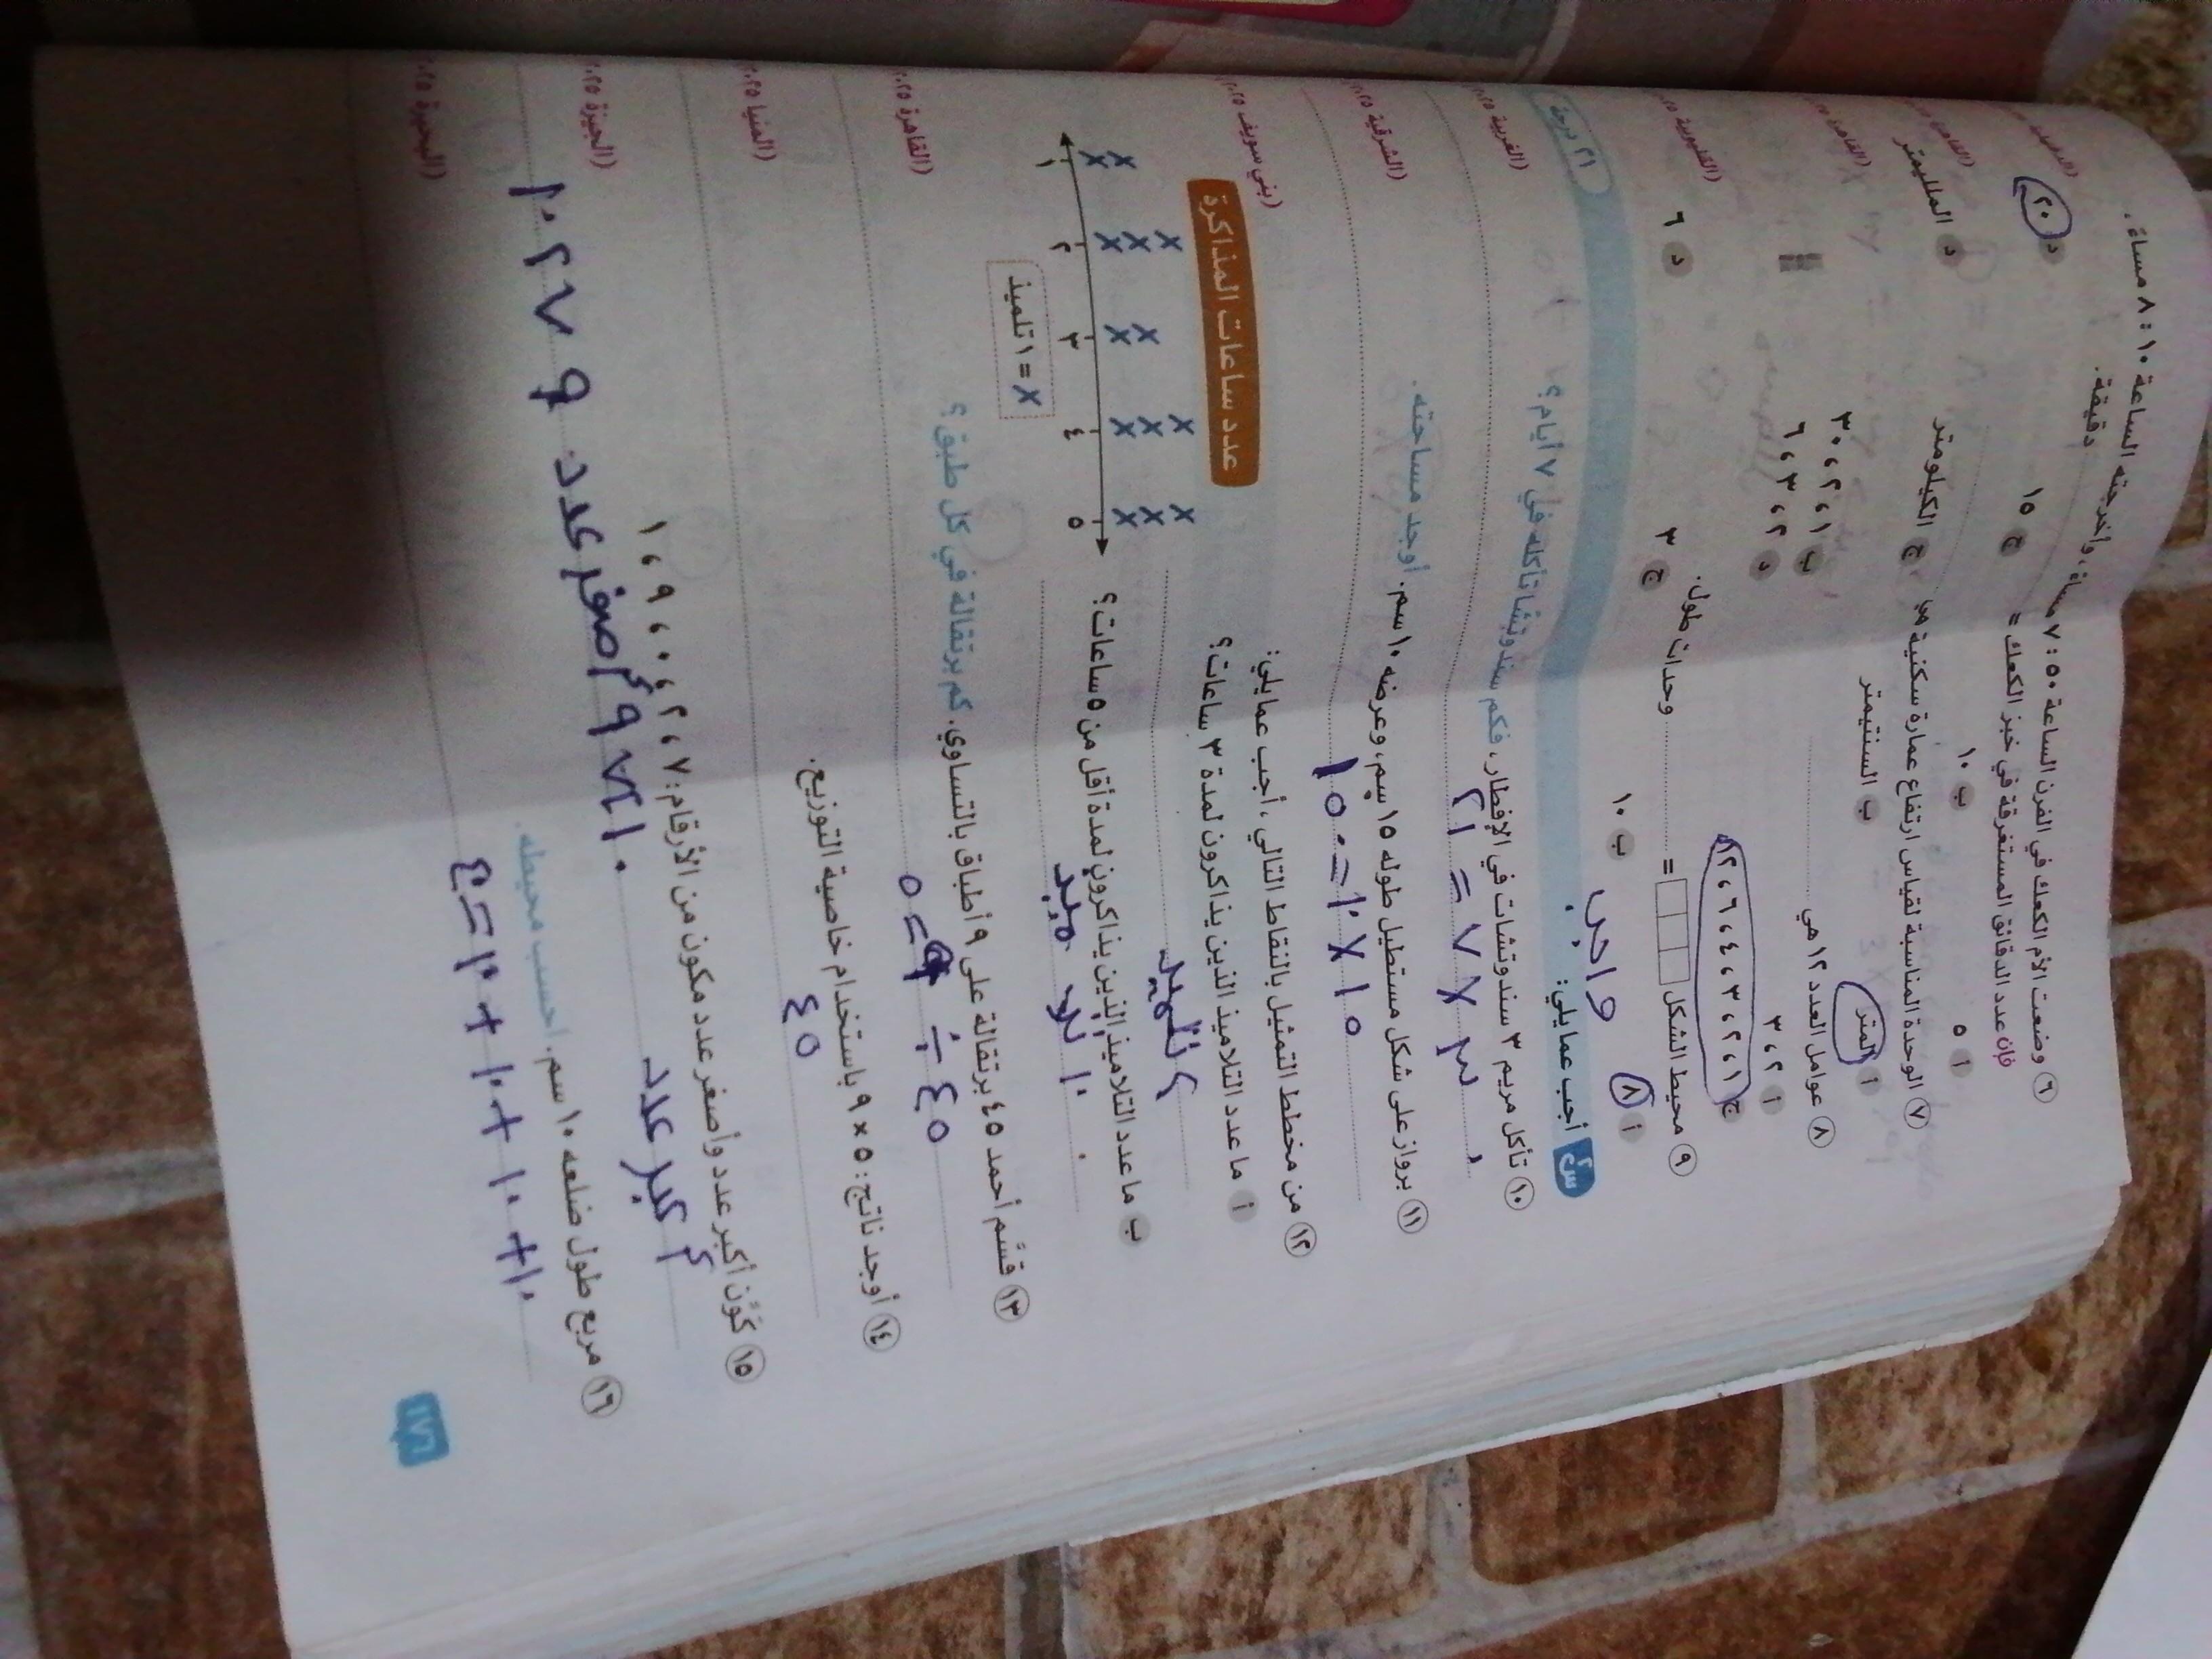 ٦ وضعت الأم الكعك في الفرن الساعة ٧:٥٠ مساءً، وأخرجته الساعة ٨:١٠ مساءً.
فإن عدد الدقائق المستغرقة في خبز الكعك = دقيقة.
أ ٥ ب ١٠ ج ١٥ د ٢٠
٧ الوحدة المناسبة لقياس ارتفاع عمارة سكنية هي
أ المتر ب السنتيمتر ج الكيلومتر د الملليمتر
٨ عوامل العدد ١٢ هي
أ ٢، ٣ ب ١، ٢، ٣٠
ج ١، ٢، ٣، ٤، ٦، ١٢ د ٢، ٣، ٦
٩ محيط الشكل = وحدات طول. (القليوبية ٢٠٢٥
أ ٨ ب ١٠ ج ٣ د ٦
واجب
س٢ أجب عما يلي: ٢١ درجة
١٠ تأكل مريم ٣ سندوتشات في الإفطار، فكم سندوتشًا تأكله في ٧ أيام؟ (الغربية ٢٠٢٥
٣ × ٧ = ٢١
١١ برواز على شكل مستطيل طوله ١٥ سم، وعرضه ١٠ سم. أوجد مساحته. (الشرقية ٢٠٢٥
١٥ × ١٠ = ١٥٠
١٢ من مخطط التمثيل بالنقاط التالي، أجب عما يلي: (بني سويف ٢٠٢٥
عدد ساعات المذاكرة
أ ما عدد التلاميذ الذين يذاكرون لمدة ٣ ساعات؟
٢ تلميذ
ب ما عدد التلاميذ الذين يذاكرون لمدة أقل من ٥ ساعات؟
١٠
١ ٢ ٣ ٤ ٥
X = ١ تلميذ
١٣ قسَّم أحمد ٤٥ برتقالة على ٩ أطباق بالتساوي. كم برتقالة في كل طبق؟ (القاهرة ٢٠٢٥
٤٥ ÷ ٩ = ٥
١٤ أوجد ناتج: ٥ × ٩ باستخدام خاصية التوزيع. (المنيا ٢٠٢٥
٤٥
١٥ كوِّن أكبر عدد وأصغر عدد مكون من الأرقام: ٧، ٢، ٠، ٩، ١ (الجيزة ٢٠٢٥
أكبر عدد ٩٧٢١٠ أصغر عدد ١٠٢٧٩
١٦ مربع طول ضلعه ١٠ سم. احسب محيطه. (البحيرة ٢٠٢٥
١٠ + ١٠ + ١٠ + ١٠ = ٤٠
١٧٦